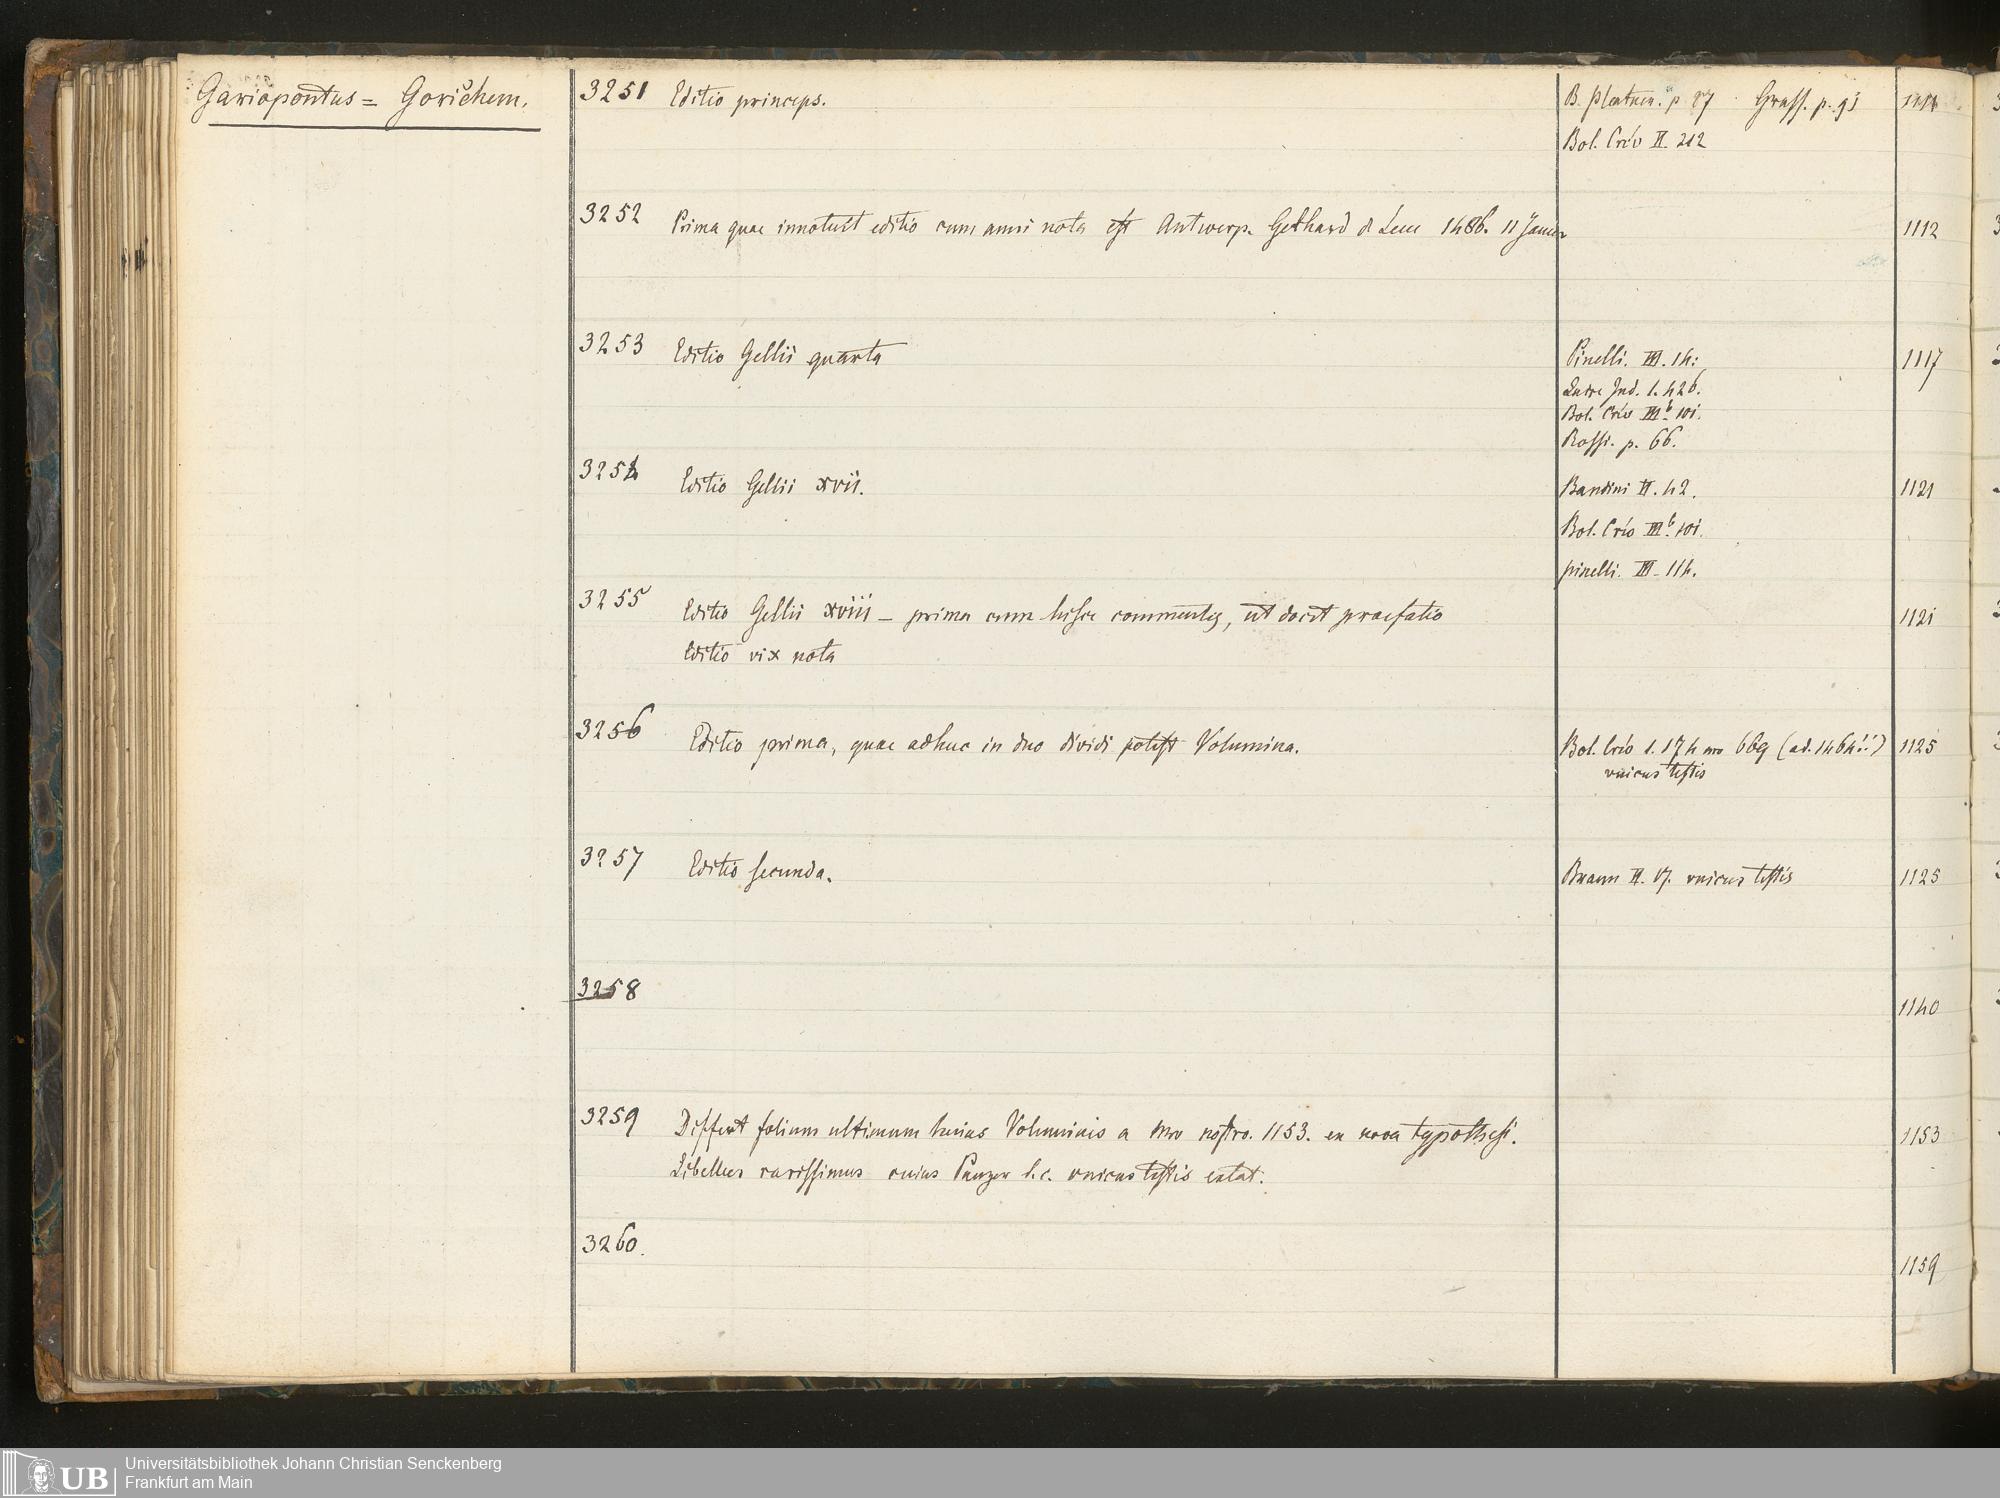 Gariopontus = Gorichem.
3251 Editio princeps. B. Platner. p 87 Graff. p. 95 1111
Bol. Crev II. 212
3252 Prima quae innotuit editio cum anni nota est Antwerp. Gerhard d Leeu 1486. 11 Januar 1112
3253 Editio Gellii quarta Pinelli. III. 14: 1117
Ind. 1. 426.
Bol. Crev III b 101.
Rossi. p. 66.
3254 Editio Gellii XVII. Bandini II. 42. 1121
Bol. Crev III b. 101.
pinelli. III - 114.
3255 Editio Gellii XVIII - prima cum hisce commentis, ut docet praefatio 1121
Editio vix nota
3256 Editio prima, quae adhuc in duo dividi potest Volumina. Bol. Crev 1. 174 nro 669 (ad. 1464!!) 1125
unicus testis
3257 Editio secunda. Braun II. 87. unicus testis 1125
3258 1140
3259 Differt folium ultimum huius Voluminis a nro nostro. 1153. en nova typothesi. 1153
Libellus rarissimus cuius Panzer l.c. unicus testis extat.
3260. 1159
UB Universitätsbibliothek Johann Christian Senckenberg
Frankfurt am Main